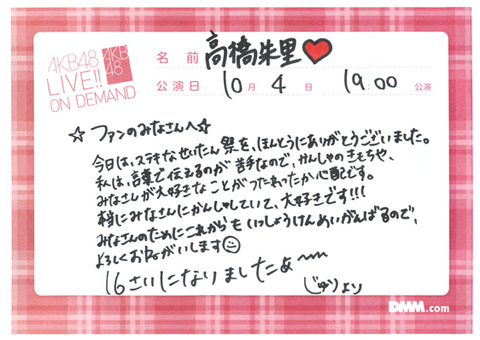 AKB48
LIVE!!
ON DEMAND
AKB
48
名前 高橋朱里♥
公演日 10月 4日 19:00 公演
☆ファンのみなさんへ☆
今日は、ステキなせいたん祭を、ほんとうにありがとうございました。
私は、言葉で伝えるのが苦手なので、かんしゃのきもちや、
みなさんが大好きなことがつたわったか心配です。
本当にみなさんにかんしゃしていて、大好きです!!!
みなさんのためにこれからもいっしょうけんめいがんばるので、
よろしくおねがいします☺
16さいになりましたぁ〜〜
じゅりより
DMM.com